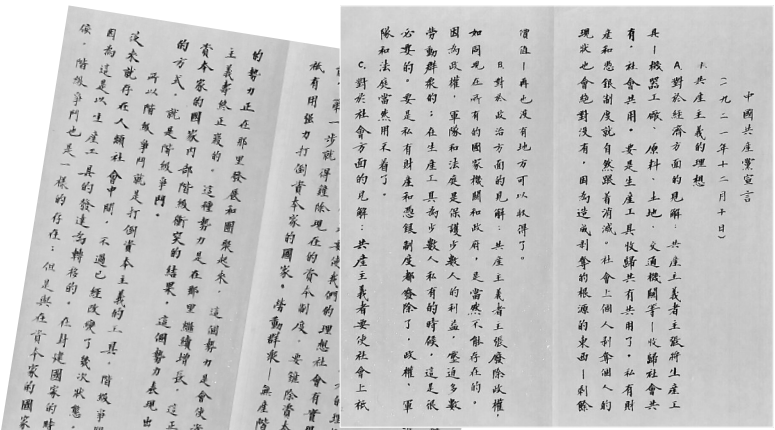 中國共產黨宣言
(一九二一年十二月十日)
1.共產主義的理想
A.對於經濟方面的見解：共產主義者主張將生產工
具—機器工廠，原料，土地，交通機關等—收歸社會共
有，社會共用。要是生產工具收歸共有共用了，私有財
產和賃銀制度就自然跟着消滅。社會上個人剝奪個人的
現狀也會絕對沒有，因為造成剝奪的根源的東西—剩餘
價值—再也沒有地方可以取得了。
B.對於政治方面的見解：共產主義者主張廢除政權，
如同現在所有的國家機關和政府，是當然不能存在的。
因為政權，軍隊和法庭是保護少數人的利益，壓迫多數
勞動群眾的；在生產工具為少數人私有的時候，這是很
必要的。要是私有財產和賃銀制度都廢除了，政權，軍
隊和法庭當然用不着了。
C.對於社會方面的見解：共產主義者要使社會上祇
要使我們的理想社會有實
第一步就得鏟除現在的資本制度。要鏟除資
祇有用強力打倒資本家的國家。勞動群眾—無產階
的勢力正在那里發展和團聚起來，這個勢力是會使
主義壽終正寢的。這種勢力是在那里繼續增長，這正
資本家的國家內部階級衝突的結果。這個勢力表現出
的方式，就是階級爭鬥。
所以階級爭鬥就是打倒資本主義的工具。階級爭
從來就存在人類社會中間，不過已經改變了幾次狀態，
因為這是以生產工具的發達為轉移的。在封建國家的時
候，階級爭鬥也是一樣的存在；但是與在資本家的國家